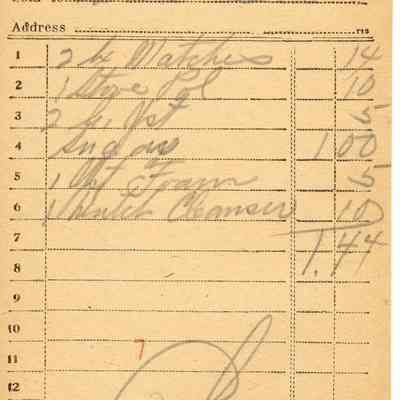 Address
1 2 bx Matches 14
2 1 Stove Pol 10
3 2 Yst 5
4 Sugar 1 00
5 1 Foam 5
6 1 Cleanser 10
7 1.44
8
9
10
7
11
12